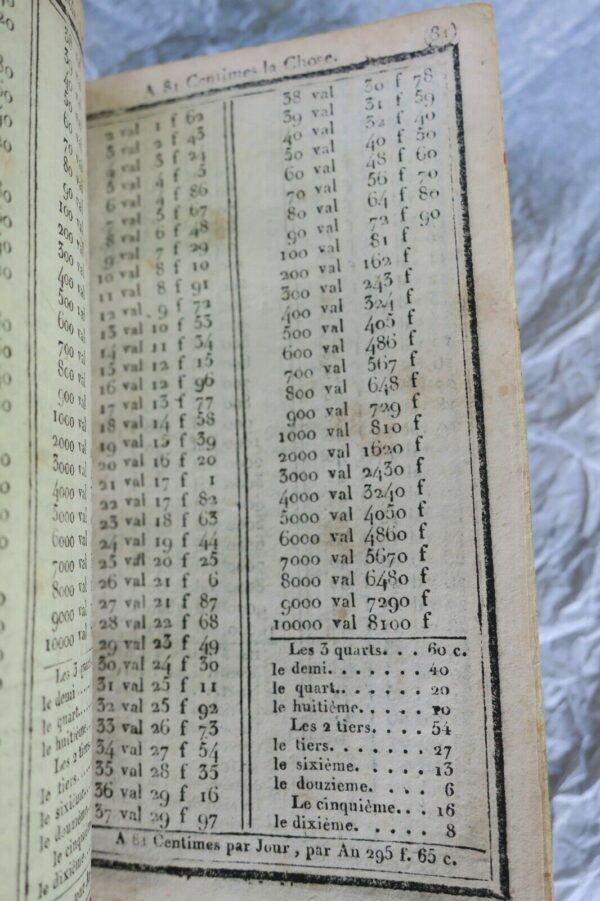 60
70
80
90
100
200
300
400
500
600
700 val
800 val
900 val
1000 val
2000 val
3000 val
4000 val
5000 val
6000 val
7000 val
8000 val
9000 val
10000 val
Les 3
le demi
le quart
le huitième
Les 2 tiers
le tiers
le sixième
le douzième
Le cinquième
le dixième
(81)
A 81 Centimes la Chose.
2 val 1 f 62
3 val 2 f 43
4 val 3 f 24
5 val 4 f 5
6 val 4 f 86
7 val 5 f 67
8 val 6 f 48
9 val 7 f 29
10 val 8 f 10
11 val 8 f 91
12 val 9 f 72
13 val 10 f 53
14 val 11 f 34
15 val 12 f 15
16 val 12 f 96
17 val 13 f 77
18 val 14 f 58
19 val 15 f 39
20 val 16 f 20
21 val 17 f 1
22 val 17 f 82
23 val 18 f 63
24 val 19 f 44
25 val 20 f 25
26 val 21 f 6
27 val 21 f 87
28 val 22 f 68
29 val 23 f 49
30 val 24 f 30
31 val 25 f 11
32 val 25 f 92
33 val 26 f 73
34 val 27 f 54
35 val 28 f 35
36 val 29 f 16
37 val 29 f 97
38 val 30 f 78
39 val 31 f 59
40 val 32 f 40
50 val 40 f 50
60 val 48 f 60
70 val 56 f 70
80 val 64 f 80
90 val 72 f 90
100 val 81 f
200 val 162 f
300 val 243 f
400 val 324 f
500 val 405 f
600 val 486 f
700 val 567 f
800 val 648 f
900 val 729 f
1000 val 810 f
2000 val 1620 f
3000 val 2430 f
4000 val 3240 f
5000 val 4050 f
6000 val 4860 f
7000 val 5670 f
8000 val 6480 f
9000 val 7290 f
10000 val 8100 f
Les 3 quarts. . . 60 c.
le demi. . . . . . . 40
le quart. . . . . . . 20
le huitième. . . . . 10
Les 2 tiers. . . . 54
le tiers. . . . . . . 27
le sixième. . . . . 13
le douzieme. . . . . 6
Le cinquième. . . 16
le dixième. . . . . 8
A 81 Centimes par Jour, par An 295 f. 65 c.